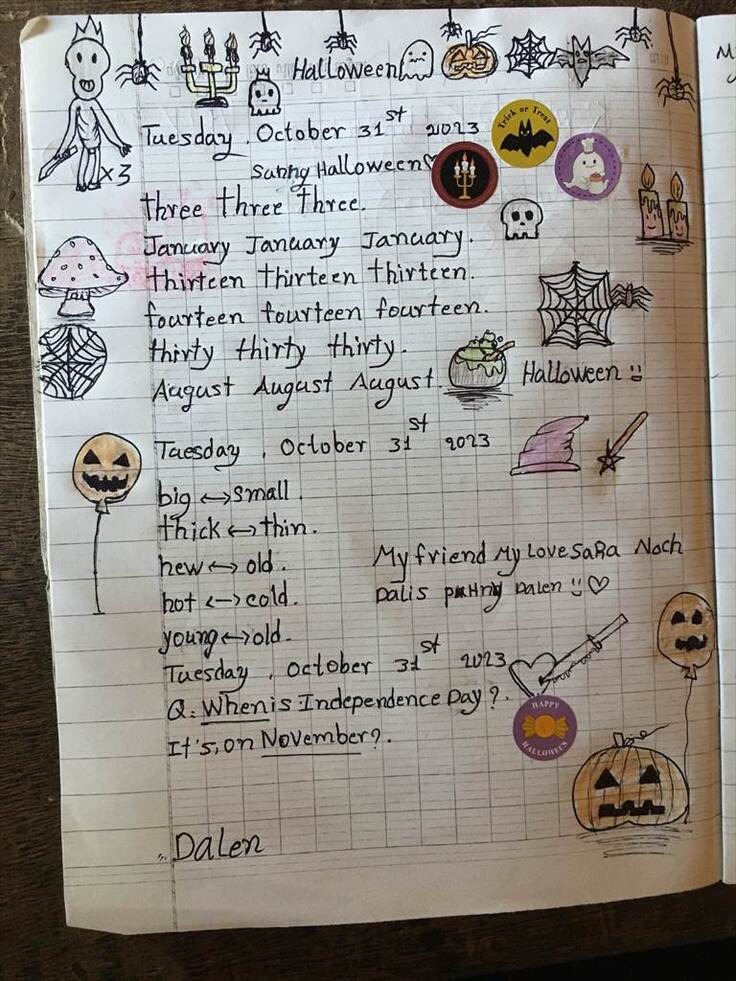 Halloween
Tuesday, October 31st 2023
Trick or Treat
Sunny Halloween
×3
three three three.
January January January.
thirteen thirteen thirteen.
fourteen fourteen fourteen.
thirty thirty thirty.
August August August.
Halloween
Tuesday, October 31st 2023
big <-> small.
thick <-> thin.
new <-> old.
hot <-> cold.
young <-> old.
My friend My Love SaRa Noch
Dalis Dalen
Tuesday, October 31st 2023
Q: When is Independence Day?
It's, on November?.
HAPPY
HALLOWEEN
Dalen